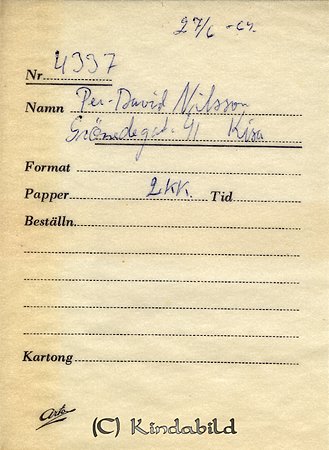 27/6 -64.
Nr 4337
Namn Per-David Nilsson
41 Kisa
Format
Papper 2kk. Tid
Beställn.
Kartong
Arko
(C) Kindabild